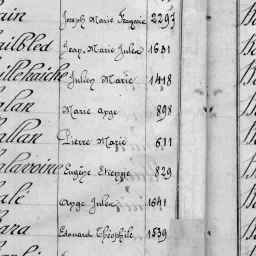 rin Joseph Marie François 2293
ailbled Jean Marie Julien 1631
illehaiche Julien Marie 1418
alan Marie Ange 898
allan Pierre Marie 611
alavoine Eugène Etienne 829
alé Ange Julien 1641
ara Edouard Théophile 1539